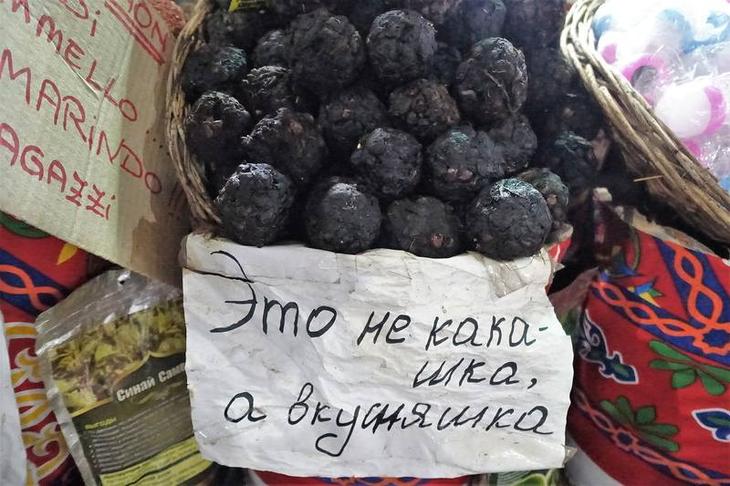 ON
Di
AMELLO
MARINDO
AGAZZi
Это не кака-
шка,
а вкусняшка
Синай Сам